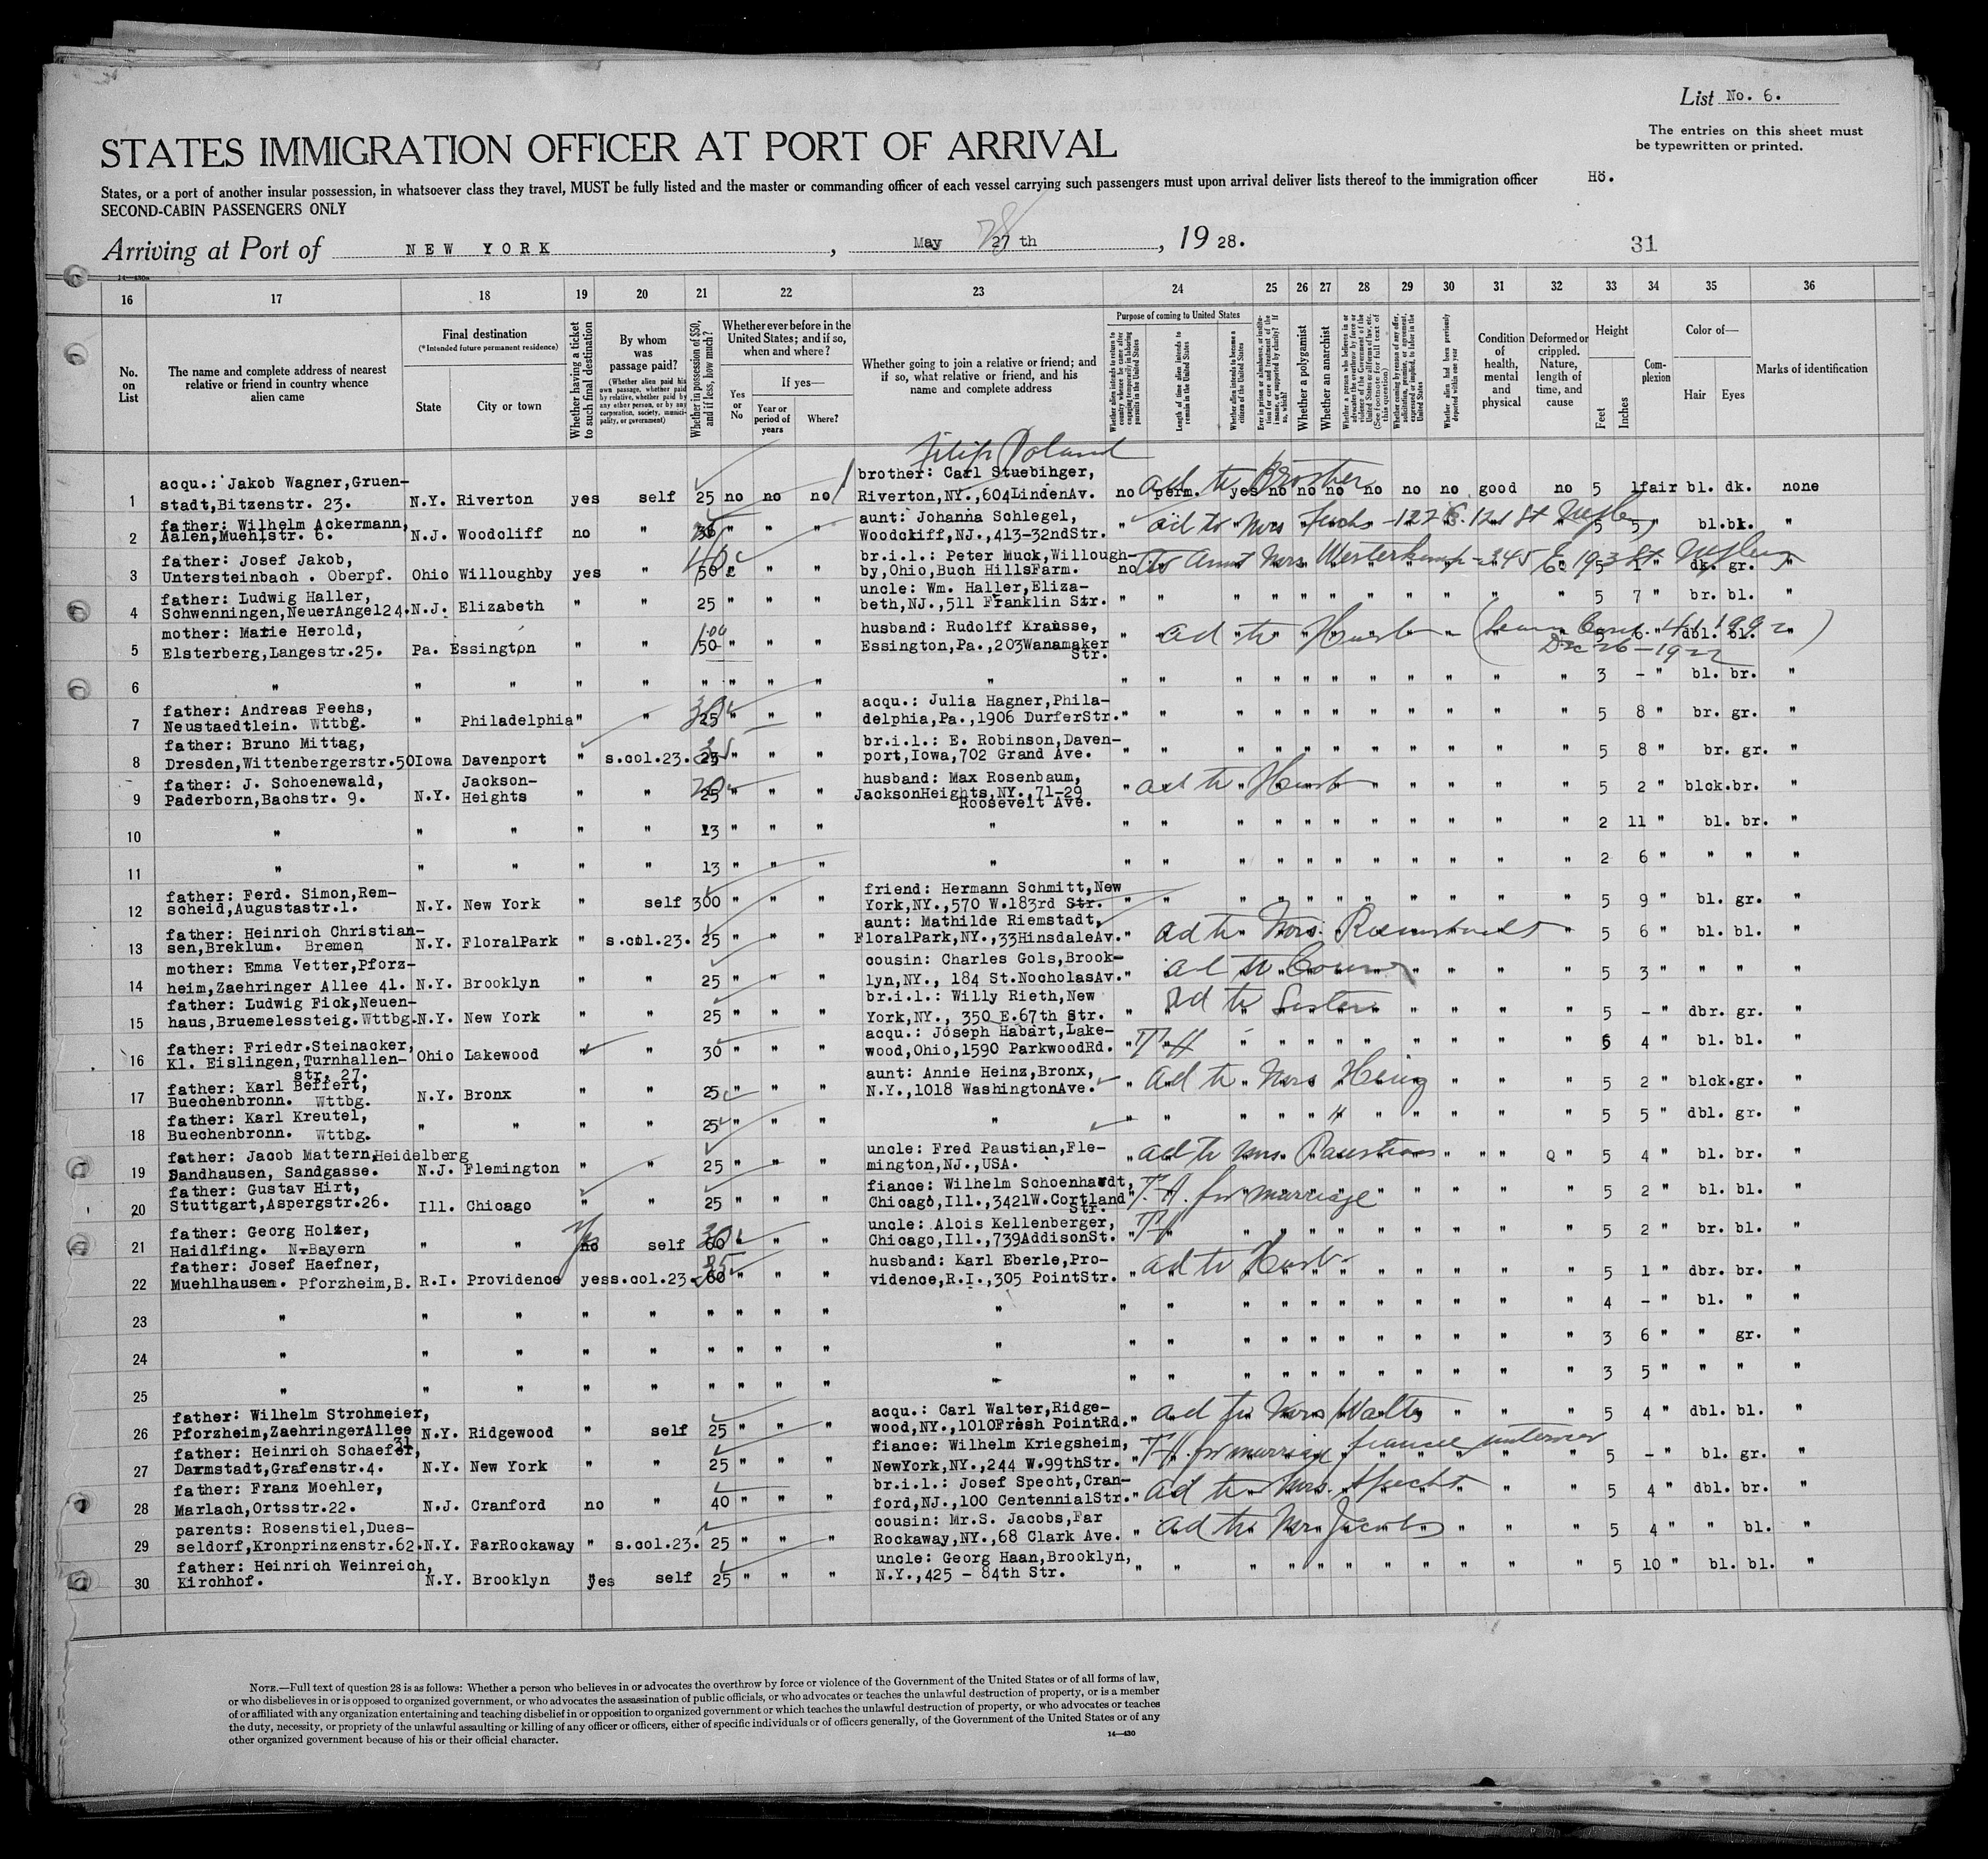 List No. 6.
The entries on this sheet must
be typewritten or printed.
STATES IMMIGRATION OFFICER AT PORT OF ARRIVAL
States, or a port of another insular possession, in whatsoever class they travel, MUST be fully listed and the master or commanding officer of each vessel carrying such passengers must upon arrival deliver lists thereof to the immigration officer
Hö.
SECOND-CABIN PASSENGERS ONLY
Arriving at Port of NEW YORK, May 27th 28, 1928.
31
14—430a
16 17 18 19 20 21 22 23 24 25 26 27 28 29 30 31 32 33 34 35 36
No. on List
The name and complete address of nearest relative or friend in country whence alien came
Final destination
(*Intended future permanent residence)
State
City or town
Whether having a ticket to such final destination
By whom was passage paid?
(Whether alien paid his own passage, whether paid by relative, whether paid by any other person, or by any corporation, society, municipality, or government)
Whether in possession of $50, and if less, how much?
Whether ever before in the United States; and if so, when and where?
If yes—
Yes or No
Year or period of years
Where?
Whether going to join a relative or friend; and if so, what relative or friend, and his name and complete address
Purpose of coming to United States
Whether alien intends to return to country whence he came after engaging temporarily in laboring pursuits in the United States
Length of time alien intends to remain in the United States
Whether alien intends to become a citizen of the United States
Whether a polygamist
Whether an anarchist
Whether alien had been previously deported within one year
Condition of health, mental and physical
Deformed or crippled. Nature, length of time, and cause
Height
Feet
Inches
Complexion
Color of—
Hair
Eyes
Marks of identification
1 acqu.: Jakob Wagner,Gruen-
stadt,Bitzenstr. 23. N.Y. Riverton yes self 25 no no no
brother: Carl Stuebinger,
Riverton,NY.,604LindenAv. no perm. yes no no no no no no good no 5 1 fair bl. dk. none
ad to Brother
2 father: Wilhelm Ackermann,
Aalen,Muehlstr. 6. N.J. Woodcliff no " " " "
aunt: Johanna Schlegel,
Woodcliff,NJ.,413-32ndStr. 5 5 " bl. bk. "
3 father: Josef Jakob,
Untersteinbach . Oberpf. Ohio Willoughby yes " 50 " " "
br.i.l.: Peter Muck,Willough-
by,Ohio,Buch HillsFarm. no 5 1 " dk. gr. "
4 father: Ludwig Haller,
Schwenningen,NeuerAngel24. N.J. Elizabeth " " 25 " " "
uncle: Wm. Haller,Eliza-
beth,NJ.,511 Franklin Str. 5 7 " br. bl. "
5 mother: Marie Herold,
Elsterberg,Langestr.25. Pa. Essington " " 50 " " "
husband: Rudolff Krausse,
Essington,Pa.,203Wanamaker
Str. 5 6 " dbl. bl. "
Dec 26-1922
6 " " " " " " " " " " 3 - " bl. br. "
7 father: Andreas Feehs,
Neustaedtlein. Wttbg. " Philadelphia " " 25 " " "
acqu.: Julia Hagner,Phila-
delphia,Pa.,1906 DurferStr. 5 8 " br. gr. "
8 father: Bruno Mittag,
Dresden,Wittenbergerstr.50 Iowa Davenport " s.col.23. " " "
br.i.l.: E. Robinson,Daven-
port,Iowa,702 Grand Ave. 5 8 " br. gr. "
9 father: J. Schoenewald,
Paderborn,Bachstr. 9. N.Y. Jackson-
Heights " " 25 " " "
husband: Max Rosenbaum,
JacksonHeights,NY.,71-29
Roosevelt Ave. 5 2 " blck. br. "
10 " " " " " 13 " " " " 2 11 " bl. br. "
11 " " " " " 13 " " " " 2 6 " " " "
12 father: Ferd. Simon,Rem-
scheid,Augustastr.1. N.Y. New York " self 300 " " "
friend: Hermann Schmitt,New
York,NY.,570 W.183rd Str. 5 9 " bl. gr. "
13 father: Heinrich Christian-
sen,Breklum. Bremen N.Y. FloralPark " s.col.23. 25 " " "
aunt: Mathilde Riemstadt,
FloralPark,NY.,33HinsdaleAv. 5 6 " bl. bl. "
14 mother: Emma Vetter,Pforz-
heim,Zaehringer Allee 41. N.Y. Brooklyn " " 25 " " "
cousin: Charles Gols,Brook-
lyn,NY., 184 St.NocholasAv. 5 3 " " " "
15 father: Ludwig Fick,Neuen-
haus,Bruemelessteig.Wttbg. N.Y. New York " " 25 " " "
br.i.l.: Willy Rieth,New
York,NY., 350 E.67th Str. 5 - " dbr. gr. "
ad to Sister
16 father: Friedr.Steinacker,
Kl. Eislingen,Turnhallen-
str. 27. Ohio Lakewood " " 30 " " "
acqu.: Joseph Habart,Lake-
wood,Ohio,1590 ParkwoodRd. 4 " bl. bl. "
17 father: Karl Beffert,
Buechenbronn. Wttbg. N.Y. Bronx " " 25 " " "
aunt: Annie Heinz,Bronx,
N.Y.,1018 WashingtonAve. 5 2 " blck. gr. "
18 father: Karl Kreutel,
Buechenbronn. Wttbg. " " " " 25 " " " " 5 5 " dbl. gr. "
19 father: Jacob Mattern,Heidelberg
Sandhausen, Sandgasse. N.J. Flemington " " 25 " " "
uncle: Fred Paustian,Fle-
mington,NJ.,USA. 5 4 " bl. br. "
20 father: Gustav Hirt,
Stuttgart,Aspergstr.26. Ill. Chicago " " 25 " " "
fiance: Wilhelm Schoenhardt,
Chicago,Ill.,3421W.Cortland
Str. 5 2 " bl. bl. "
for marriage
21 father: Georg Holzer,
Haidlfing. N-Bayern " " no self 60 " " "
uncle: Alois Kellenberger,
Chicago,Ill.,739AddisonSt. 5 2 " br. bl. "
22 father: Josef Haefner,
Muehlhausen. Pforzheim,B. R.I. Providence yes s.col.23. 60 " " "
husband: Karl Eberle,Pro-
vidence,R.I.,305 PointStr. 5 1 " dbr. br. "
23 " " " " " " " " " " 4 - " bl. " "
24 " " " " " " " " " " 3 6 " " gr. "
25 " " " " " " " " " " 3 5 " " " "
26 father: Wilhelm Strohmeier,
Pforzheim,ZaehringerAllee
31. N.Y. Ridgewood " self 25 " " "
acqu.: Carl Walter,Ridge-
wood,NY.,1010Fresh PointRd. 5 4 " dbl. bl. "
27 father: Heinrich Schaefer,
Darmstadt,Grafenstr.4. N.Y. New York " " 25 " " "
fiance: Wilhelm Kriegsheim,
NewYork,NY.,244 W.99thStr. 5 - " bl. gr. "
28 father: Franz Moehler,
Marlach,Ortsstr.22. N.J. Cranford no " 40 " " "
br.i.l.: Josef Specht,Cran-
ford,NJ.,100 CentennialStr. 5 4 " dbl. br. "
29 parents: Rosenstiel,Dues-
seldorf,Kronprinzenstr.62. N.Y. FarRockaway " s.col.23. 25 " " "
cousin: Mr.S. Jacobs,Far
Rockaway,NY.,68 Clark Ave. 5 4 " " bl. "
30 father: Heinrich Weinreich,
Kirchhof. N.Y. Brooklyn yes self 25 " " "
uncle: Georg Haan,Brooklyn,
N.Y.,425 - 84th Str. 5 10 " bl. bl. "
NOTE.—Full text of question 28 is as follows: Whether a person who believes in or advocates the overthrow by force or violence of the Government of the United States or of all forms of law,
or who disbelieves in or is opposed to organized government, or who advocates the assassination of public officials, or who advocates or teaches the unlawful destruction of property, or is a member
of or affiliated with any organization entertaining and teaching disbelief in or opposition to organized government or which teaches the unlawful destruction of property, or who advocates or teaches
the duty, necessity, or propriety of the unlawful assaulting or killing of any officer or officers, either of specific individuals or of officers generally, of the Government of the United States or of any
other organized government because of his or their official character.
14—430